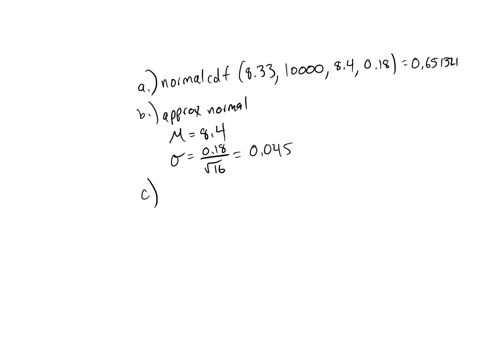 a.) normalcdf (8.33, 10000, 8.4, 0.18) = 0.651321
b.) approx normal
μ = 8.4
σ = 0.18/√16 = 0.045
c)